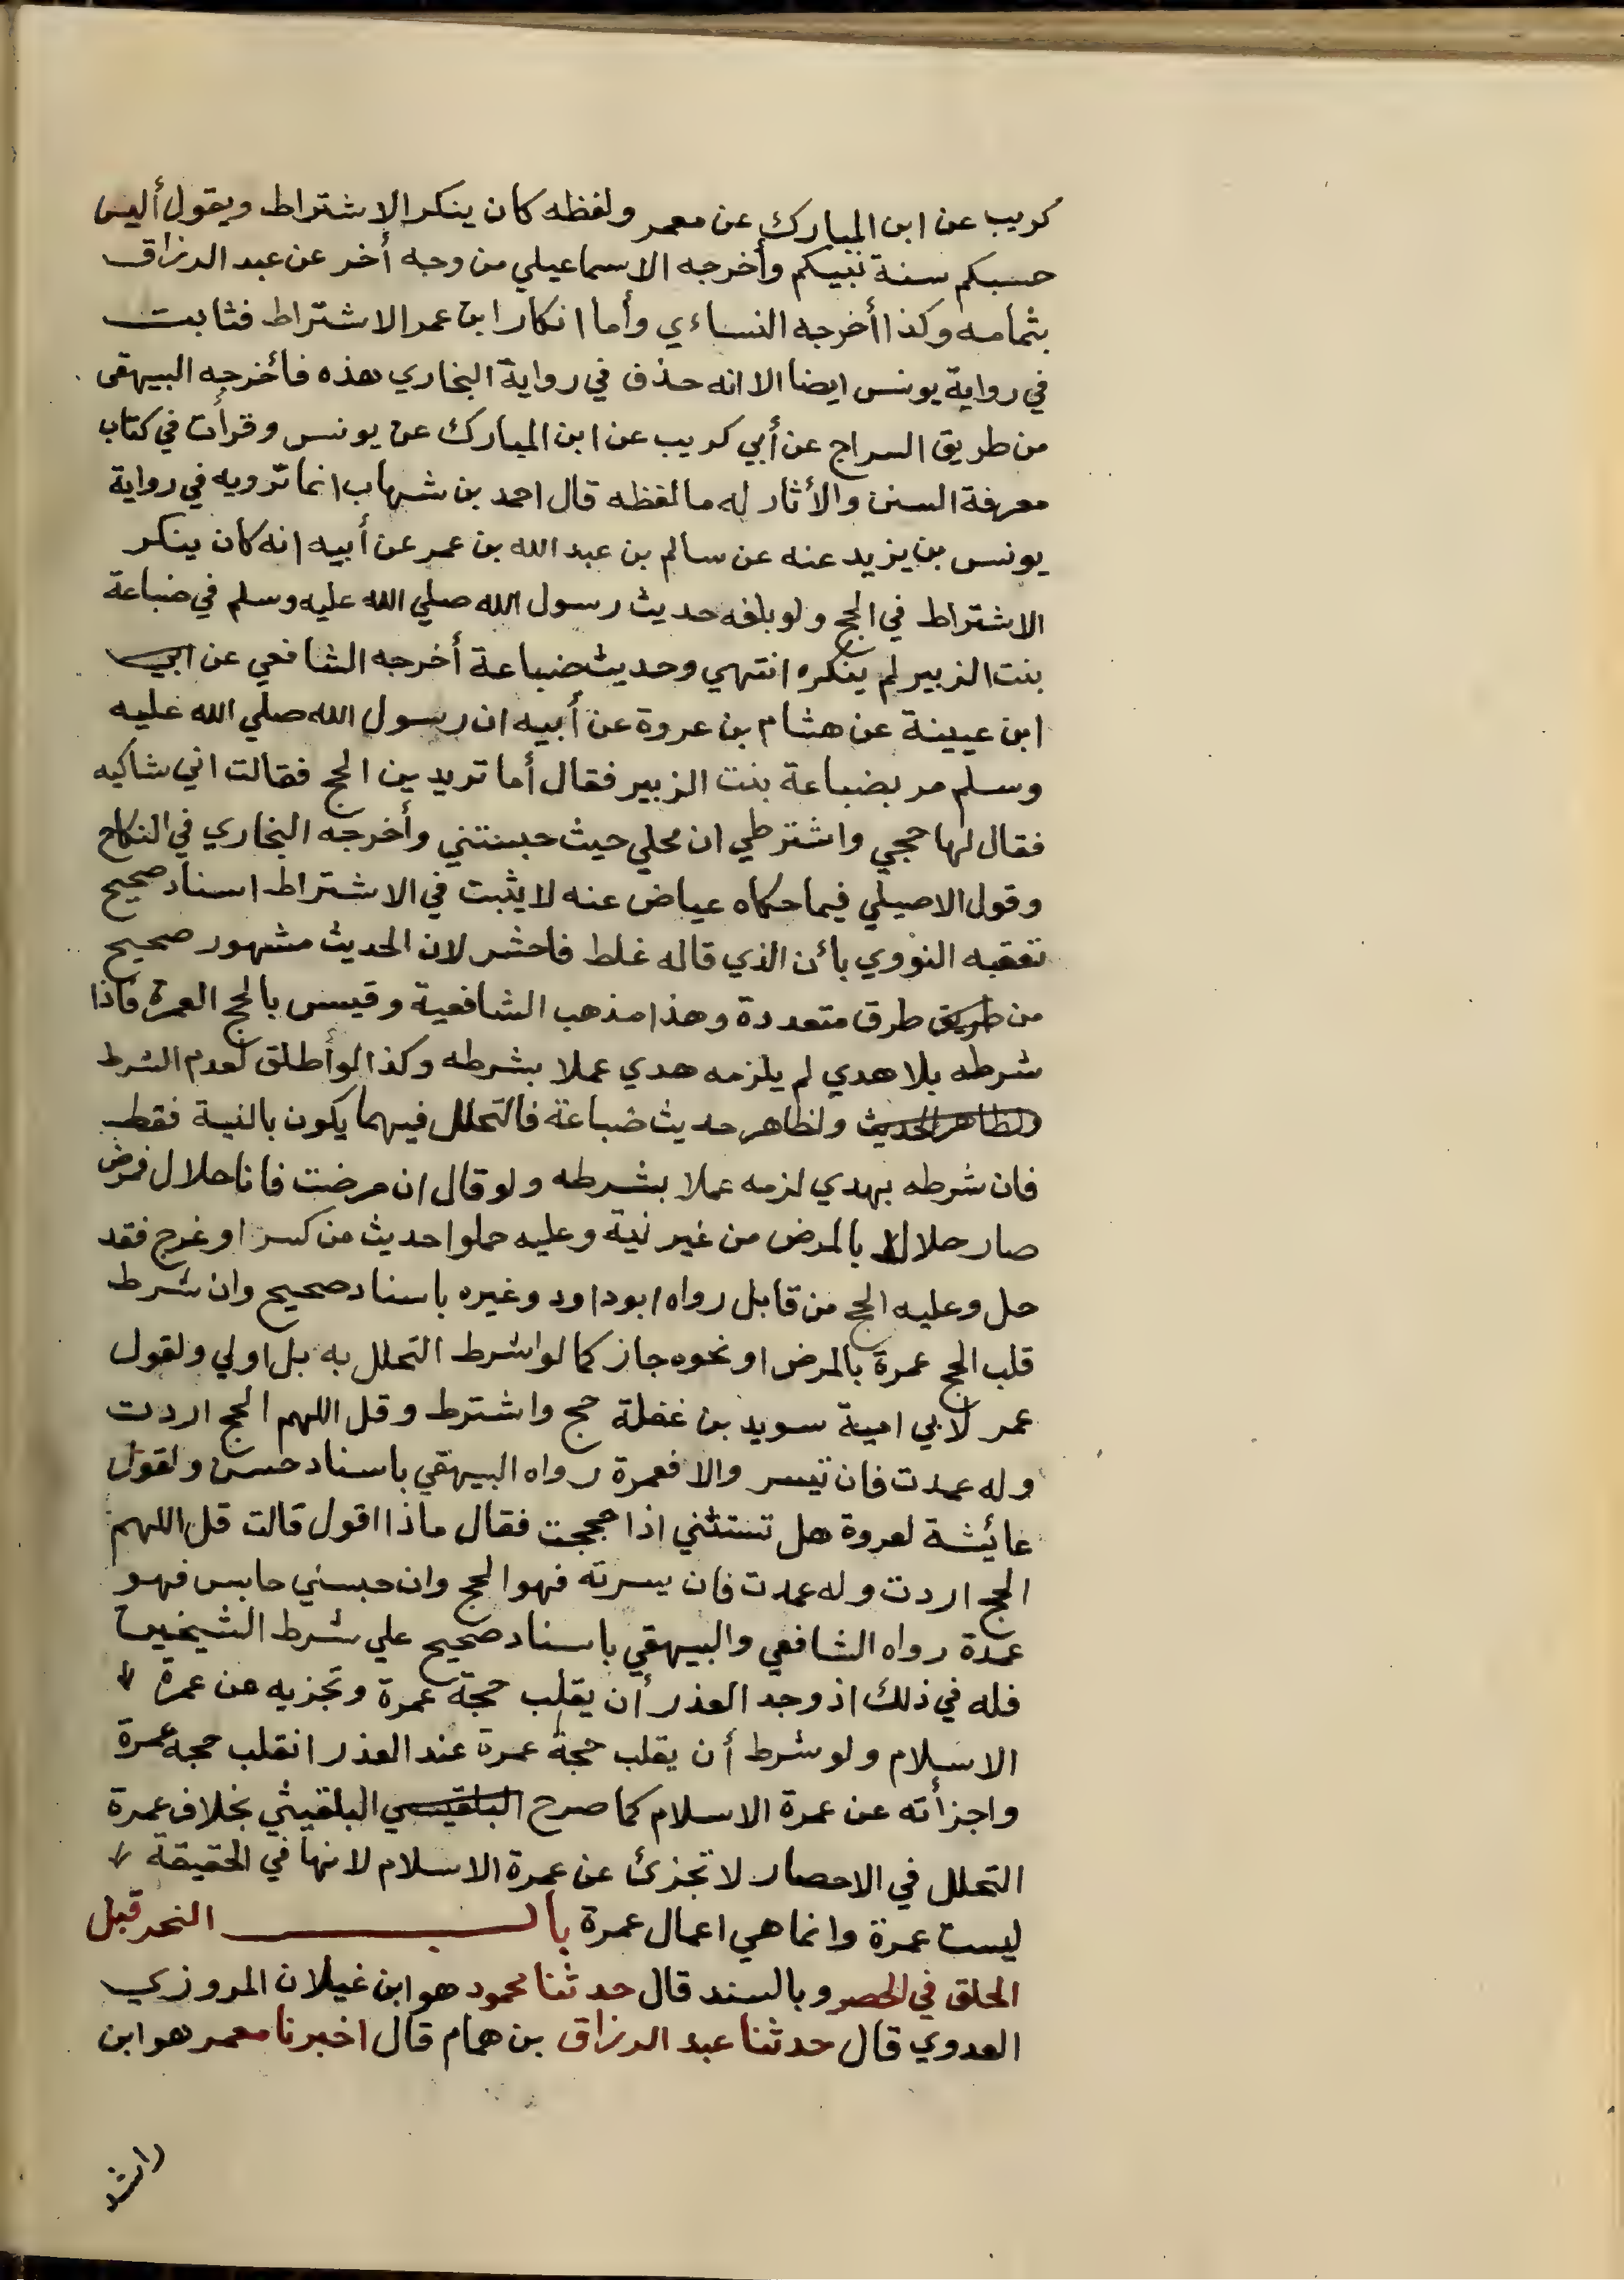 كريب عن ابن المبارك عن معمر ولفظه كان ينكر الاشتراط ويقول أليس
حسبكم سنة نبيكم وأخرجه الاسماعيلي من وجه أخر عن عبد الرزاق
بتمامه وكذا أخرجه النساءي وأما انكار ابن عمر الاشتراط فثابت
في رواية يونس ايضا الا انه حذف في رواية البخاري هذه فأخرجه البيهقي
من طريق السراج عن أبي كريب عن ابن المبارك عن يونس وقرأت في كتاب
معرفة السنن والأثار له ما لفظه قال احمد بن شهاب انما نرويه في رواية
يونس بن يزيد عنه عن سالم بن عبد الله بن عمر عن أبيه انه كان ينكر
الاشتراط في الحج ولو بلغه حديث رسول الله صلي الله عليه وسلم في ضباعة
بنت الزبير لم ينكره انتهي وحديث ضباعة أخرجه الشافعي عن ابي
ابن عيينة عن هشام بن عروة عن أبيه ان رسول الله صلي الله عليه
وسلم مر بضباعة بنت الزبير فقال أما تريدين الحج فقالت اني شاكيه
فقال لها حجي واشترطي ان محلي حيث حبستني وأخرجه البخاري في النكاح
وقول الاصيلي فيما حكاه عياض عنه لا يثبت في الاشتراط اسناد صحيح
تعقبه النووي بأن الذي قاله غلط فاحش لان الحديث مشهور صحيح
من طريق طرق متعددة وهذا مذهب الشافعية وقيس بالحج العمرة فاذا
شرطه بلا هدي لم يلزمه هدي عملا بشرطه وكذا لو أطلق لعدم الشرط
ولظاهر الحديث ولظاهر حديث ضباعة فالتحلل فيهما يكون بالنية فقط
فان شرطه بهدي لزمه عملا بشرطه ولو قال ان مرضت فانا حلال فمرض
صار حلالا بالمرض من غير نية وعليه حملوا حديث من كسر او عرج فقد
حل وعليه الحج من قابل رواه ابو داود وغيره باسناد صحيح وان شرط
قلب الحج عمرة بالمرض او نحوه جاز كما لو اشرط التحلل به بل اولي ولقول
عمر لأبي امية سويد بن غفلة حج واشترط وقل اللهم الحج اردت
وله عمدت فان تيسر والا فعمرة رواه البيهقي باسناد حسن ولقول
عائيشة لعروة هل تستثني اذا حججت فقال ماذا اقول قالت قل اللهم
الحج اردت وله عمدت فان يسرته فهو الحج وان حبسني حابس فهو
عمرة رواه الشافعي والبيهقي باسناد صحيح علي شرط الشيخين
فله في ذلك اذ وجد العذر أن يقلب حجة عمرة وتجزيه عن عمرة
الاسلام ولو شرط أن يقلب حجة عمرة عند العذر انقلب حجه عمرة
واجزأته عن عمرة الاسلام كما صرح البلقيسي البلقيني بخلاف عمرة
التحلل في الاحصار لا تجزئ عن عمرة الاسلام لانها في الحقيقة
ليست عمرة وانما هي اعمال عمرة باب النحر قبل
الحلق في الحصر وبالسند قال حدثنا محمود هو ابن غيلان المروزي
العدوي قال حدثنا عبد الرزاق بن همام قال اخبرنا معمر هو ابن
راشد